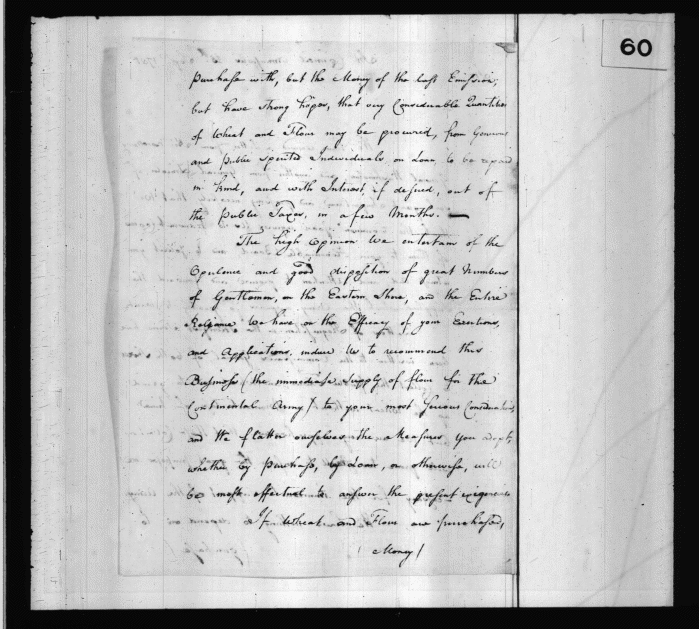 60
purchase with, but the Money of the last Emission,
but have strong hopes, that very Considerable Quantities
of Wheat and Flour may be procured, from Generous
and public spirited Individuals, on Loan, to be repaid
in kind, and with Interest, if desired, out of
the public Taxes, in a few Months. —
The high Opinion We entertain of the
Opulence and good disposition of great Numbers
of Gentlemen, on the Eastern Shore, and the Entire
Reliance We have on the Efficacy of your Exertions,
and Applications, induce Us to recommend this
Business (the immediate supply of flour for the
Continental Army) to your most serious Consideration,
and We flatter ourselves the Measures you adopt,
whether by purchase, by Loan, or otherwise, will
be most effectual to answer the present exigencies
If Wheat and Flour are purchased,
(Money)